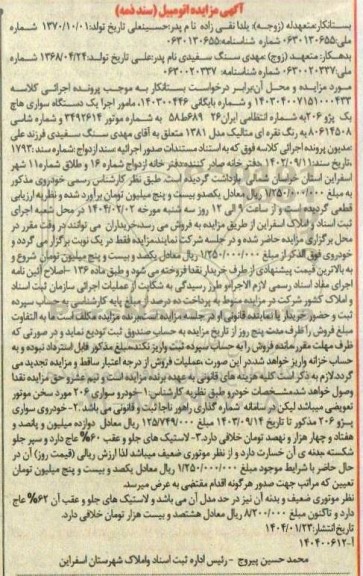 آگهی مزایده اتومبیل (سند ذمه)
بستانکار:متعهدله (زوجه): یلدا نقی زاده نا م پدر:حسینعلی تاریخ تولد:۱۳۷۰/۱۰/۰۱ شماره
ملی:۰۶۳۰۱۳۰۶۵۵ شماره شناسنامه:۰۶۳۰۱۳۰۶۵۵
بدهکار: متعهد (زوج) :مهدی سنگ سفیدی نام پدر:علی تاریخ تولد:۱۳۶۸/۰۴/۲۴ شماره
ملی:۰۶۳۰۰۲۰۳۳۷ شماره شناسنامه: ۰۶۳۰۰۲۰۳۳۷
مورد مزایده و محل آن:برابر درخواست بستانکار به موجب پرونده اجرائی کلاسه
۱۴۰۳۰۴۰۰۷۱۵۱۰۰۰۴۳۳ و شماره بایگانی ۱۴۰۳۰۰۴۴۶، مامور اجرا یک دستگاه سواری هاچ
یک پژو ۲۰۶ به شماره انتظامی ایران۲۶ ۶۸۹ط۵۸ به شماره موتور ۳۴۹۲۶۱۴ و شماره شاسی
۸۰۶۱۴۵۰۸ به رنگ نقره ای متالیک مدل ۱۳۸۱ متعلق به آقای مهدی سنگ سفیدی فرزند علی
مدیون پرونده اجرائی کلاسه فوق که به استناد مستندات صدور اجرائیه سند ازدواج:شماره سند:۱۷۹۳
،تاریخ سند:۱۴۰۲/۰۹/۱۱ ،دفتر خانه صادر کننده:دفترخانه ازدواج شماره ۱۶ و طلاق شماره۱۱ شهر
اسفراین استان خراسان شمالی بازداشت گردیده است طبق نظر کارشناس رسمی خودروی مذکور
به مبلغ ۱/۲۵۰/۰۰۰/۰۰۰ ریال معادل یکصدو بیست و پنج میلیون تومان برآورد شده و نظریه ارزیابی
قطعی گردیده است و از ساعت ۹ الی ۱۲ روز سه شنبه مورخه ۱۴۰۴/۰۲/۰۲ در محل شعبه اجرای
ثبت اسناد و املاک اسفراین از طریق مزایده به فروش می رسد،خریداران می توانند در وقت مقرر در
محل برگزاری مزایده حاضر شده و در جلسه شرکت نمایند،مزایده فقط در یک نوبت برگزار می گردد و
خودروی فوق الذکر از مبلغ ۱/۲۵۰/۰۰۰/۰۰۰ ریال معادل یکصد و بیست و پنج میلیون تومان شروع و
به بالاترین قیمت پیشنهادی از طرف خریدار نقدا فروخته می شود و طبق ماده ۱۳۶ -اصلاح آئین نامه
اجرای مفاد اسناد رسمی لازم الاجراو طرز رسیدگی به شکایت از عملیات اجرائی سازمان ثبت اسناد
و املاک کشور شرکت در مزایده منوط به پرداخت ده درصد از مبلغ پایه کارشناسی به حساب سپرده
ثبت و حضور خریدار یا نماینده قانونی او در جلسه مزایده است،برنده مزایده مکلف است ما به التفاوت
مبلغ فروش راظرف مدت پنج روز از تاریخ مزایده به حساب صندوق ثبت تودیع نماید و در صورتی که
ظرف مهلت مقرر مانده فروش رابه حساب سپرده ثبت واریز نکند،مبلغ مذکور قابل استرداد نبوده و به
حساب خزانه واریز خواهد شد،در این صورت ،عملیات فروش از درجه اعتبار ساقط و مزایده تجدید می
گردد.لازم به ذکر است کلیه هزینه های قانونی به عهده برنده مزایده است و نیم عشر و حق مزایده نقدا
وصول خواهد شد.مشخصات خودرو طبق نظریه کارشناس:۱-خودرو سواری ۲۰۶ مورد سخن موتور
تعویضی میباشد لیکن در سامانه شماره گذاری راهور ناجا ثبت و قانونی می باشد. ۲-خودروی سواری
پژو ۲۰۶ مذکور تا تاریخ ۱۴۰۳/۰۹/۱۴ مبلغ ۱۲۵/۷۴۹/۰۰۰ ریال معادل دوازده میلیون و پانصد و
هفتاد و چهار هزار و نهصد تومان خلافی دارد.۳- لاستیک های جلو و عقب ۶۰٪ عاج دارد و سپر جلو
شکسته بدنه ی آن خسارت دارد و از نظر موتوری ضعیف میباشد لذا ارزش ریالی (قیمت روز) آن در
حال حاضر با شرایط موجود مبلغ ۱/۲۵۰/۰۰۰/۰۰۰ ریال معادل یکصد و بیست و پنج میلیون تومان
تعیین که مراتب جهت صدور هرگونه اقدام مقتضی به عرض میرسد.
نظر موتوری ضعیف و بدنه آن نیز در حد مدل آن می باشد و لاستیک های جلو و عقب آن ۶۲٪ عاج
دارد و تاکنون مبلغ ۸/۲۰۰/۰۰۰ ریال معادل هشتصد و بیست هزار تومان خلافی دارد.
تاریخ انتشار:۱۴۰۴/۰۱/۲۳
آ-۱۴۰۴۰۰۶۱۲
محمد حسین پیروج - رئیس اداره ثبت اسناد واملاک شهرستان اسفراین